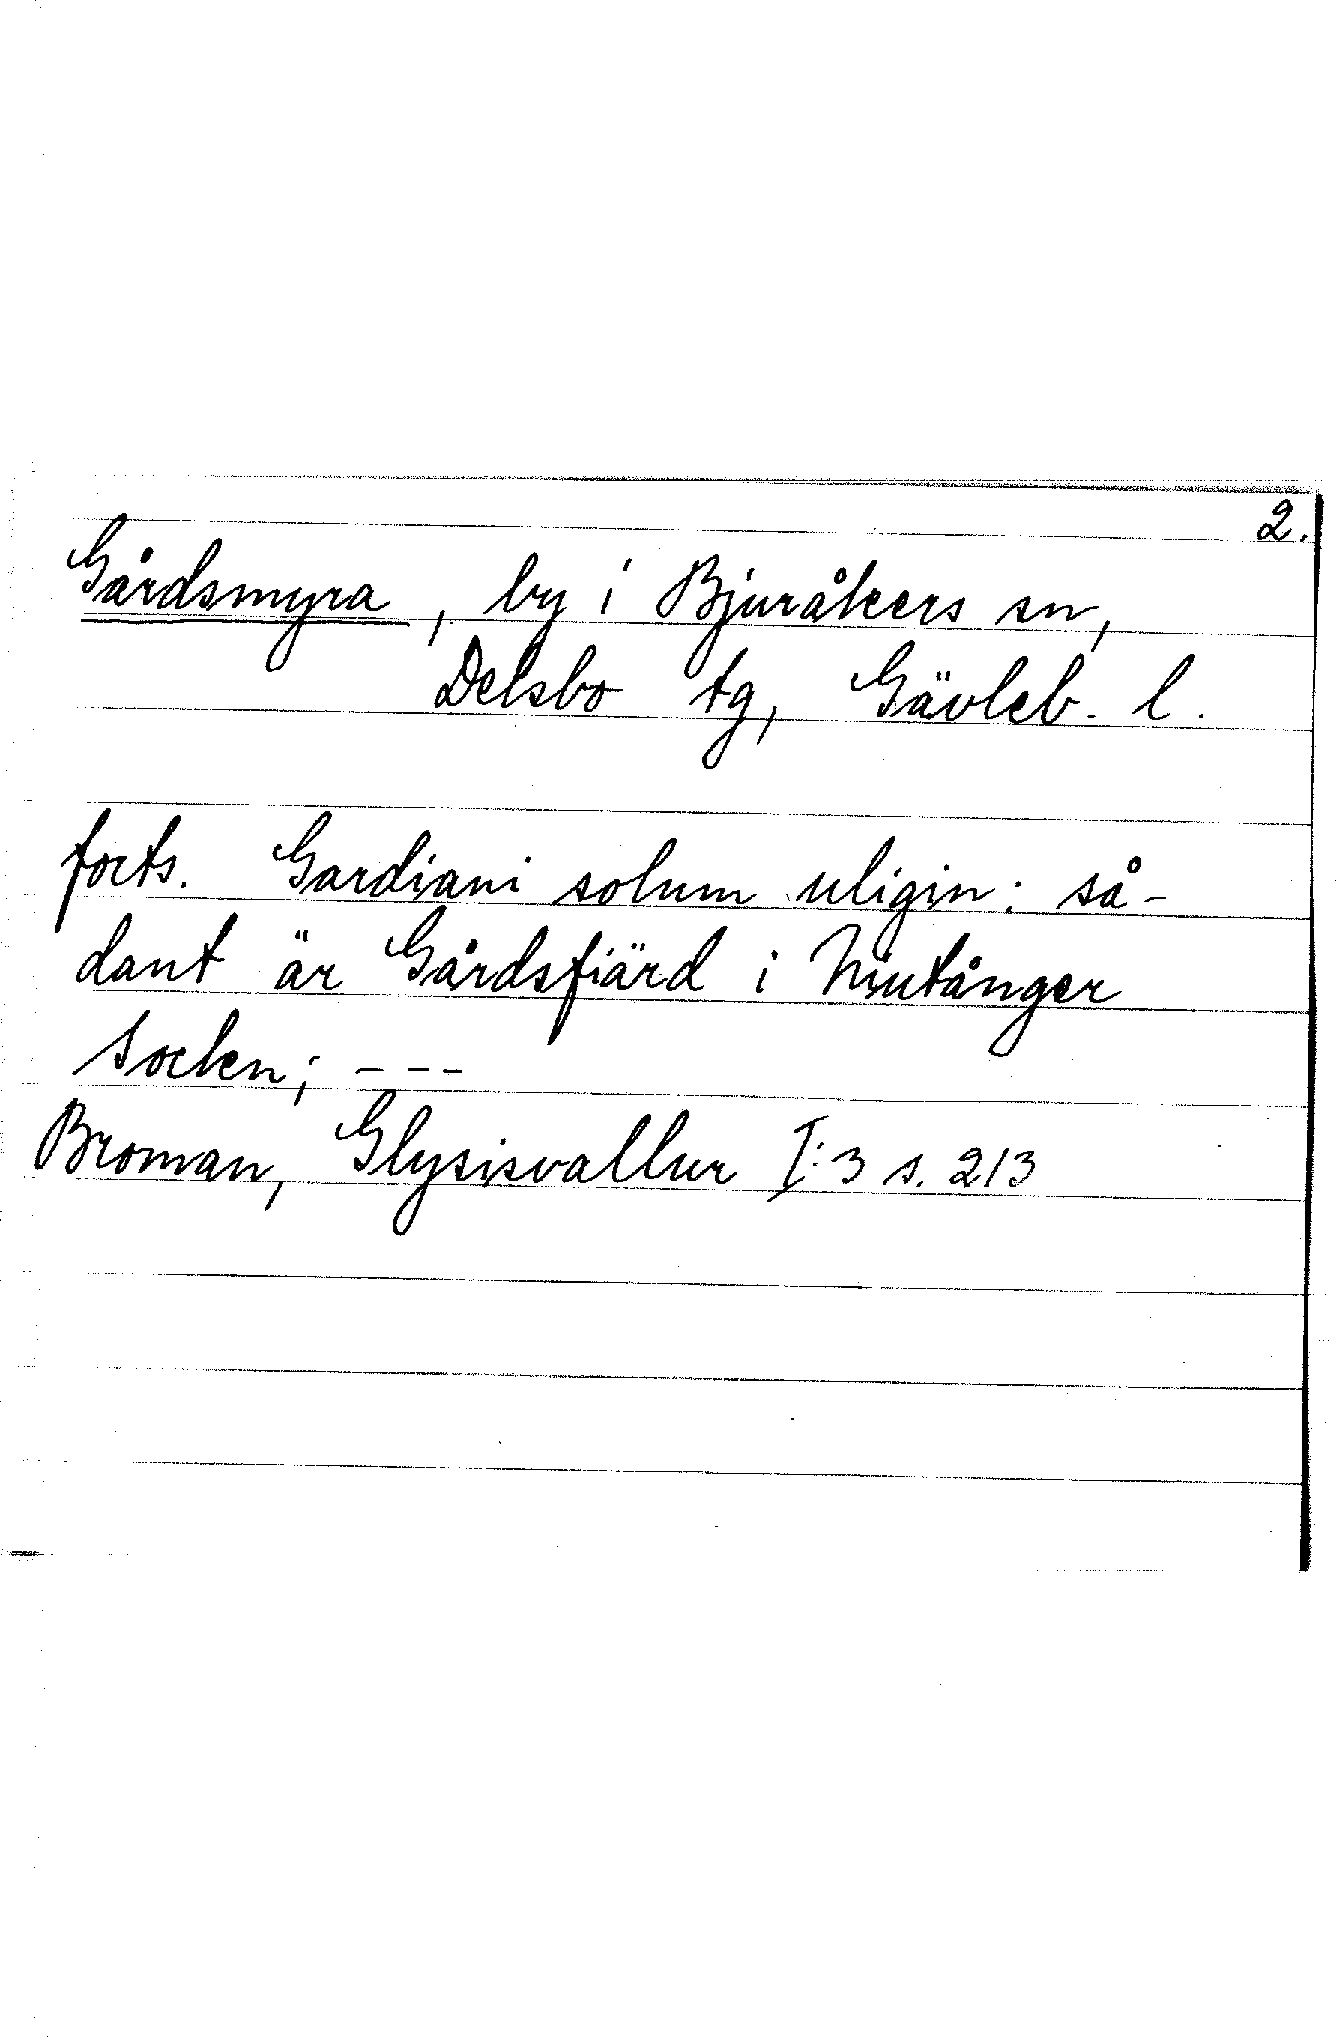 2.
Gårdsmyra, by i Bjuråkers sn,
Delsbo tg, Gävleb. l.
forts. Gardiani solum uligin: så-
dant är Gårdsfiärd i Niutånger
Socken; ---
Broman, Glysisvallur I:3 s. 213